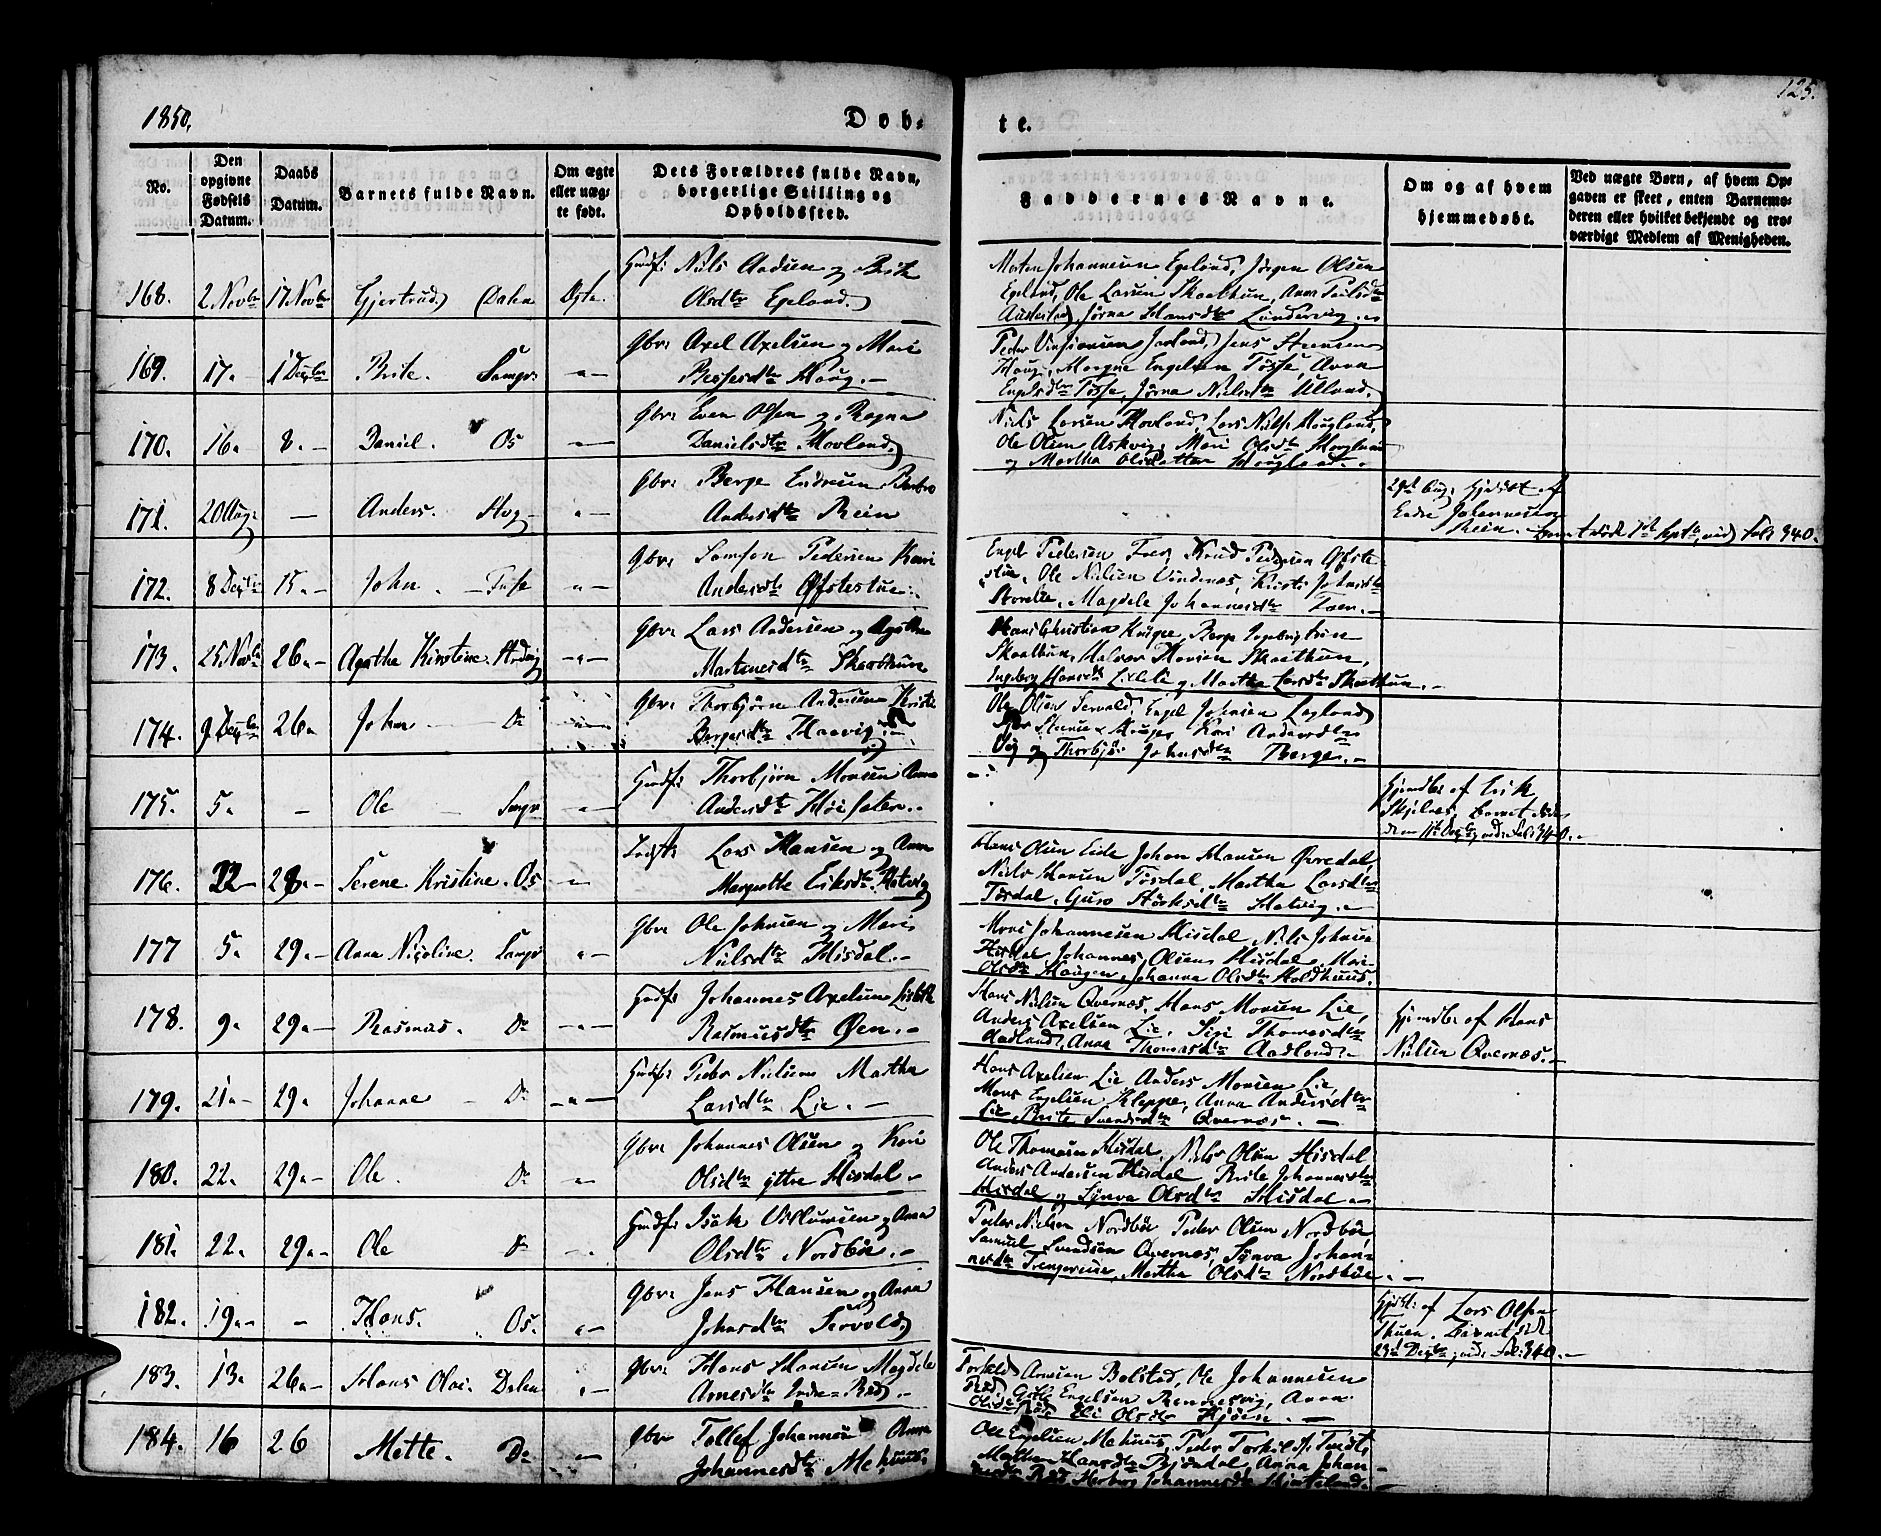 1850.
Døb-
te.
125.
No.
Den
opgivne
Fødsels
Datum.
Daabs
Datum.
Barnets fulde Navn.
Om ægte
eller uæg-
te født.
Dets Forældres fulde Navn,
borgerlige Stilling og
Opholdssted.
Faddernes Navne.
Om og af hvem
hjemmedøbt.
Ved uægte Børn, af hvem Op-
gaven er skeet, enten Barnemo-
deren eller hvilket bekjendt og tro-
værdigt Medlem af Menigheden.
168. 2 Novbr 17 Novbr Gjertrud Dalen Ægte.
Nils og Brite
Olsdtr Egeland.
Morten Johannesen Egeland, Jørgen Olsen
Egeland, Ole Larsen Skaathun, Anna
Jørna Hansdtr
169. 17 " 1 Decbr Brite. "
Gbr: Axel Axelsen og Mari
Haug.
Jens
Haug, Mogne Engelsen Tøsse, Anna
Engelsdtr Tøsse, Jørna Nielsdtr Ulland.
170. 16 " 8 " Daniel. Os "
Gbr: Even Olsen og Ragna
Danielsdtr Hovland.
Niels Larsen Hovland, Lars Nilss Haugland,
Ole Olsen Askvig, Mari Olsdtr
og Martha Olsdatter Haugland.
171. 20 Aug: — Anders. Hog "
Gbr: Berge Endresen Barbro
Andersdtr Rein
29de Aug: hjdøbt af
Endre Johannesen
Rein. Barnet døde 1st Septbr, vid. Fol: 340.
172. 8 Decbr 15 " John. "
Gbr: Samson Pedersen Kari
Andersdtr Øfstestue.
Engel Pedersen Knud Pedersen Øfste-
stue, Ole Nielsen Vindenes, Kristi
Magdele Johannesdtr
173. 25 Novbr 26 " Agatha Kirstine. "
Gbr: Lars Andersen og Agatha
Mortensdtr Skaathun
Hans Christian Berge
Skaathun, Halvor Hansen Skaathun,
Ingeborg Hansdtr og Martha Larsdtr Skaathun.
174. 9 Decbr 26 " John Do "
Gbr: Thorbjørn Andersen Kristi
Bergesdtr Haavig.
Ole Olsen Servold, Engel Johnsen
Kari Andersdtr
og Thorbjør Johnsdtr Berge.
175. 5 " — Ole "
Hmdf: Thorbjørn Monsen Anna
Andersdtr Høisæter.
Hjemdbt af Erik
Skjelnes, Barnet døde
den 11te Decbr, vid. Fol: 340.
176. 22 28 " Serene Kristine. Os "
Lars Hansen og Anna
Margrethe Eriksdtr. Hatvig
Hans Olsen Eide Johan Hansen Øvredal,
Niels Hansen Tøsdal, Martha Larsdtr
Tøsdal, Guro Størksdtr Hatvig.
177 5 " 29 " Anna Nicoline. "
Gbr: Ole Johnsen og Mari
Nilsdtr Hisdal.
Mons Johannesen Hisdal, Nils Johnsen
Hisdal Johannes Olsen Hisdal, Mari
Olsdtr Haugen, Johanna Olsdtr Holdhuus.
178. 9 " 29 " Rasmus. Do "
Hmdf: Johannes Axelsen Lisbeth
Rasmusdtr Øen.
Hans Nielsen Qvernæs, Hans Monsen Lie,
Anders Axelsen Lie, Siri Thomasdtr
Aadland, Anna Thomasdtr Aadland.
Hjemdbt af Hans
Nielsen Qvernæs.
179. 21 " 29 " Johanne Do "
Hmdf: Peder Nielsen Martha
Larsdtr Lie.
Hans Axelsen Lie, Anders Monsen Lie,
Mons Engelsen Kleppe, Anna Andersdtr
Lie, Brite Svendsdtr Qvernæs.
180. 22. 29 " Ole. Do "
Gbr: Johannes Olsen og Kari
Olsdtr ytre Hisdal
Ole Thomasen Hisdal, Nils Olsen Hisdal
Anders Andersen Hisdal Brite Johannesdtr
Hisdal og Synva Olsdtr Hisdal
181. 22. 29 " Ole Do "
Hmdf: Isak Villumsen og Anna
Olsdtr Nordbøe.
Peder Nielsen Nordbøe Peder Olsen Nordbøe,
Samuel Svendsen Qvernæs, Synva Johan-
nesdtr Trengereise, Martha Olsdtr Nordbøe.
182. 19 " — Hans. Os. "
Gbr: Jens Hansen og Anna
Johnsdtr Servold
Hjdbt: af Lars Olsen
Barnet død
23de Decbr, vide Fol: 340.
183. 13. 26 " Hans Olai. Dalen "
Gbr: Hans Hansen Magdele
Arnesdtr Indre-Rød.
Torkild Arnesen Bolstad, Ole Johannesen
Rød, Engelsen Rennesvig, Anna
Eli Olsdtr
184. 16 26 Mette. Do "
Gbr Tollef Johannesen Anna
Johannesdtr Mehuus.
Ole Engelsen Mehuus, Peder
Martha Hansdtr Bjørndal, Anna Johan-
nesdtr Rød, Johannesdtr